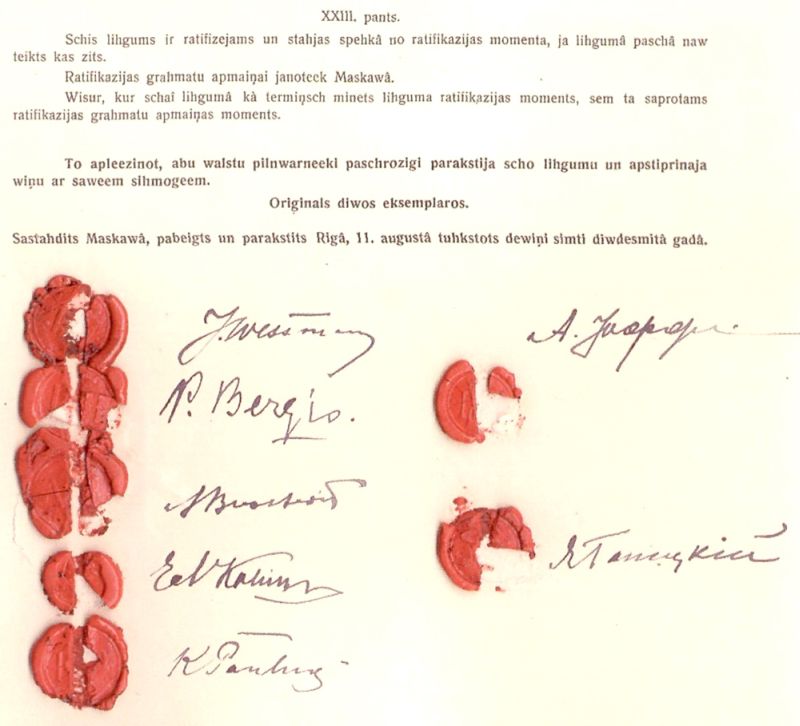 XXIII. pants.
Schis lihgums ir ratifizejams un stahjas spehkâ no ratifikazijas momenta, ja lihgumâ paschâ naw
teikts kas zits.
Ratifikazijas grahmatu apmaiņai janoteek Maskawâ.
Wisur, kur schai lihgumâ kà termiņsch minets lihguma ratifikazijas moments, sem ta saprotams
ratifikazijas grahmatu apmaiņas moments.
To apleezinot, abu walstu pilnwarneeki paschrozigi parakstija scho lihgumu un apstiprinaja
wiņu ar saweem sihmogeem.
Originals diwos eksemplaros.
Sastahdits Maskawâ, pabeigts un parakstits Rigâ, 11. augustâ tuhkstots dewiņi simti diwdesmitâ gadâ.
J. Wessmann
А. Іоффе
P. Bergis.
Я Ганецкій